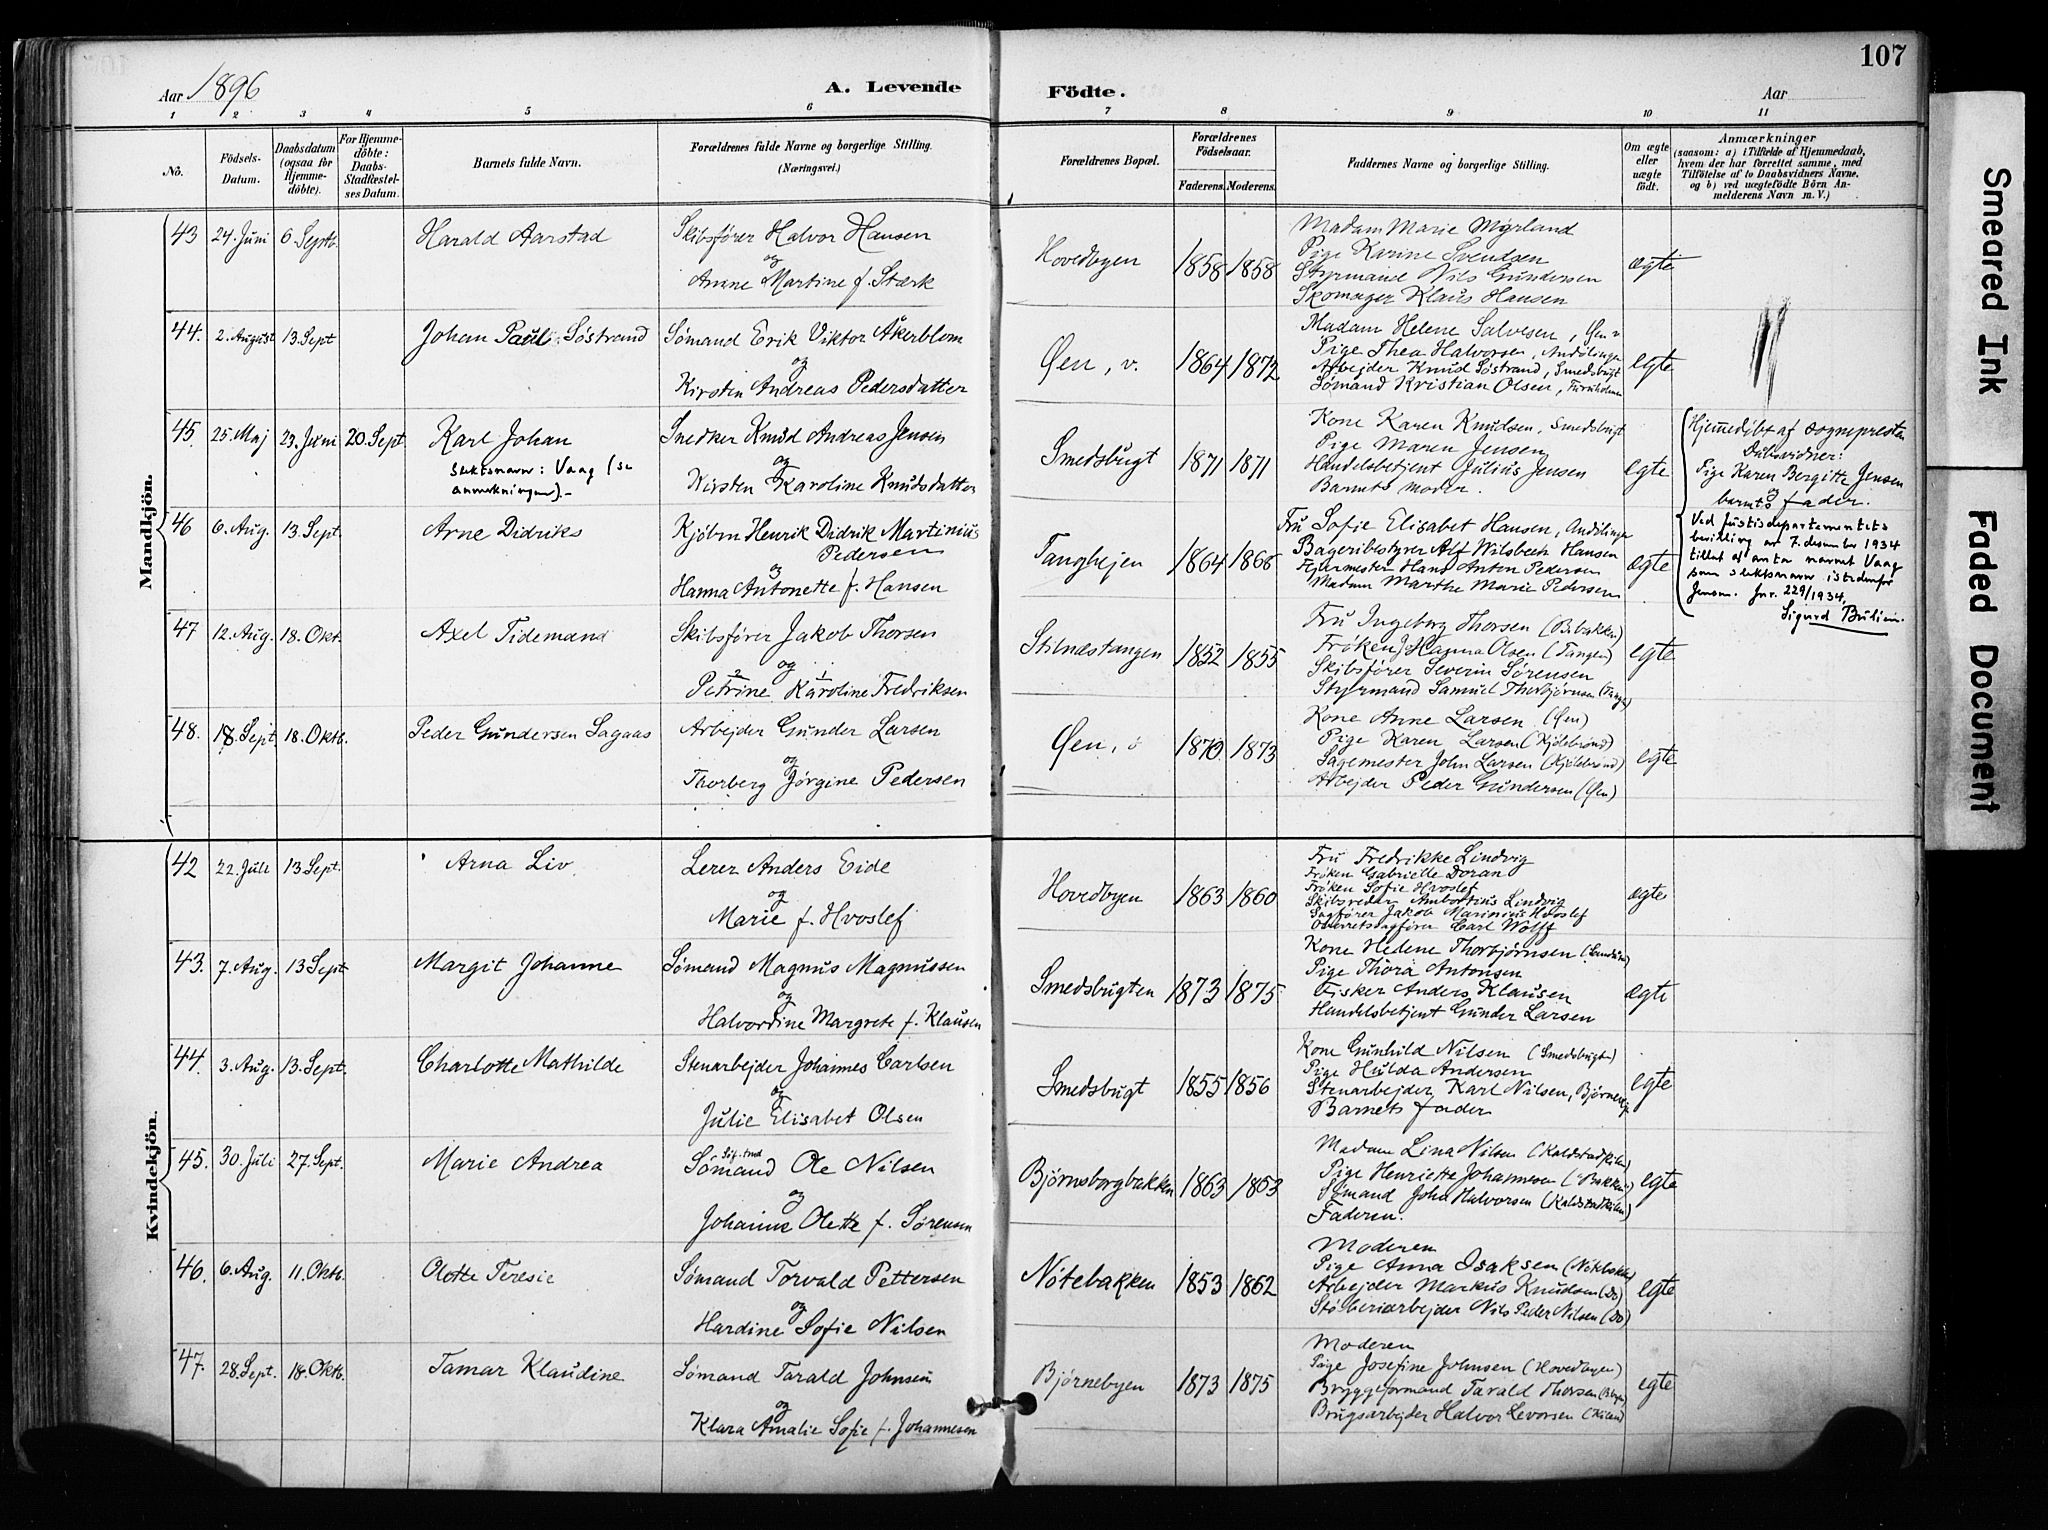 107
Aar 1896
A. Levende Födte.
Aar
1 2 3 4 5 6 7 8 9 10 11
No. Födsels-Datum. Daabsdatum (ogsaa för Hjemme-döbte). For Hjemme-döbte: Daabs-Stadfæstel-ses Datum. Barnets fulde Navn. Forældrenes fulde Navne og borgerlige Stilling. (Næringsvei.) Forældrenes Bopæl. Forældrenes Födselsaar. Faderens. Moderens. Faddernes Navne og borgerlige Stilling. Om ægte eller uægte födt. Anmærkninger (saasom: a) i Tilfælde af Hjemmedaab, hvem der har forrettet samme, med Tilföielse af to Daabsvidners Navne, og b) ved uægtefödte Börn An-melderens Navn m. V.)
Mandkjön.
43 24. Juni 6. Septb. Harald Aarstad Skibsfører Halvor Hansen
og
Anne Martine f. Stærk
Hovedbyen 1858 1858
Madam Marie Myrland
Pige Karine Svendsen
Styrmand Nils Gundersen
Skomager Klaus Hansen
ægte
44. 2. August 13. Sept Johan Paul Søstrand Sømand Erik Viktor Åkerblom
og
Kirstin Andreas Pedersdatter
Øen, v. 1864 1872
Madam Helene Salvesen, Øen v
Pige Thea Halvorsen,
Arbejder Knud Søstrand, Smedsbugt
Sømand Kristian Olsen, Furuholmen
egte
45. 25. Maj 29. Juni 20. Sept Karl Johan
Slektsnavn: Vaag (se
anmerkningene).-
Snedker Knud Andreas Jensen
og
Kirsten Karoline Knudsdatter
Smedsbugt 1871 1871
Kone Karen Knudsen, Smedsbugt
Pige Maren Jensen
Handelsbetjent Julius Jensen
Barnets moder.
egte
Hjemmedöbt af sogneprsten
Dåbsvidner:
Pige Karen Bergitte Jensen
og
barnets fader.
Ved Justisdepartementets
bevilling av 7. desember 1934
tillat at anta navnet Vaag
som slektsnavn istedenfor
Jensen. Jnr. 229/1934.
Sigurd Bulien.
46 6. Aug. 13. Sept. Arne Didriks Kjøbm Henrik Didrik Martinius
Pedersen
og
Hanna Antonette f. Hansen
Tanghejen 1864 1866
Fru Sofie Elisabet Hansen,
Bageribestyrer Alf Wilsbech Hansen
Fjermester Hans Anton Pedersen
Madam Marthe Marie Pedersen
ægte
47 12. Aug. 18. Okt. Axel Tidemand Skibsfører Jakob Thorsen
og
2 1
Petrine Karoline Fredriksen
Stilnæstangen 1852 1855
Fru Ingeborg Thorsen (Bibakken)
Frøken Hanna Olsen (Tangen)
Skibsfører Severin Sørensen
Styrmand Samuel Thorbjørnsen (Tangen)
egte
48. 18. Sept 18. Oktb. Peder Gundersen Sagaas Arbejder Gunder Larsen
og
Thorberg Jørgine Pedersen
Øen, ö 1870 1873
Kone Anne Larsen (Øen)
Pige Karen Larsen (Kjölebrønd)
Sagemester John Larsen (Kjölebrønd)
Arbejder Peder Gundersen (Øen)
egte
Kvindekjön.
42 22. Juli 13 Sept. Arna Liv Lerer Anders Eide
og
Marie f. Hvoslef
Hovedbyen 1863 1860
Fru Fredrikke Lindvig
Frøken Gabrielle Doran
Frøken Sofie Hvoslef
Skibsreder Ambortius Lindvig
Sagfører Jakob Marinius Hvoslef
Overretssagfører Carl Wolff
ægte
43. 7. Aug. 13 Sept Margit Johanne Sømand Magnus Magnussen
og
Halvordine Margrete f. Klausen
Smedsbugten 1873 1875
Kone Hedene Thorbjørnsen
Pige Thora Antonsen
Fisker Anders Klausen
Handelsbetjent Gunder Larsen
ægte
44. 3. Aug. 13. Sept. Charlotte Mathilde Stenarbejder Johannes Carlsen
og
Julie Elisabet Olsen
Smedsbugt 1855 1856
Kone Gunhild Nilsen (Smedsbugten)
Pige Hulda Andersen
Stenarbejder Karl Nilsen,
Barnets fader
egte
45. 30. Juli 27. Sept. Marie Andrea Sømand Ole Nilsen
og
Johanne Olette f. Sørensen
Bjørnsborgbakken 1863 1863
Madam Lina Nilsen (Kalstadkilen)
Pige Henriette Johannesen (Bakken)
Sømand John Halvorsen (Kalstadkilen)
Faderen.
egte
46. 6. Aug. 11. Oktb. Olette Teresie Sømand Torvald Pettersen
og
Hardine Sofie Nilsen
Nötebakken 1853 1862
Moderen
Pige Anna Isaksen (Nötebakken)
Arbejder Markus Knudsen (Do)
Støberiarbejder Nils Peder Nilsen (Do)
egte
47. 28. Sept. 18. Oktb. Tamar Klaudine Sømand Tarald Johnsen
og
Klara Amalie Sofie f. Johannesen
Bjørnebyen 1873 1875
Moderen
Pige Josefine Johnsen (Hovedbyen)
Bryggeformand Tarald Thorsen
Brugsarbejder Halvor Levorsen (Kilen)
egte
Smeared Ink
Faded Document